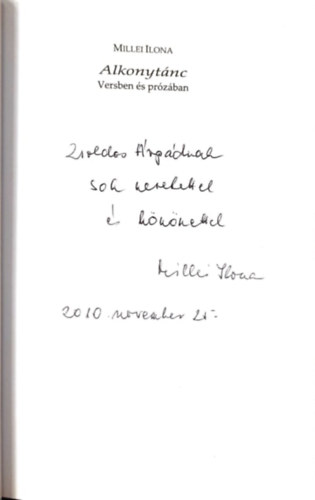 MILLEI ILONA
Alkonytánc
Versben és prózában
Zsoldos Árpádnak
sok szeretettel
és köszönettel
Millei Ilona
2010 november 25.